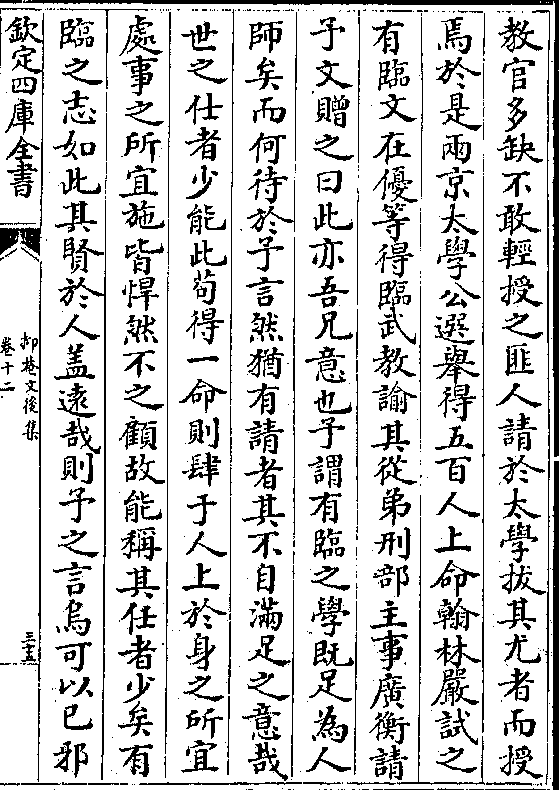 教官多缺不敢輕授之匪人請於太學拔其尤者而授
焉於是兩京太學公選舉得五百人上命翰林嚴試之
有臨文在優等得臨武教諭其從弟刑部主事廣衡請
予文贈之曰此亦吾兄意也予謂有臨之學既足為人
師矣而何待於予言然猶有請者其不自滿足之意哉
世之仕者少能此苟得一命則肆于人上於身之所宜
處事之所宜施皆悍然不之顧故能稱其任者少矣有
臨之志如此其賢於人蓋遠哉則予之言烏可以已邪
欽定四庫全書
抑菴文後集
卷十二
三十五